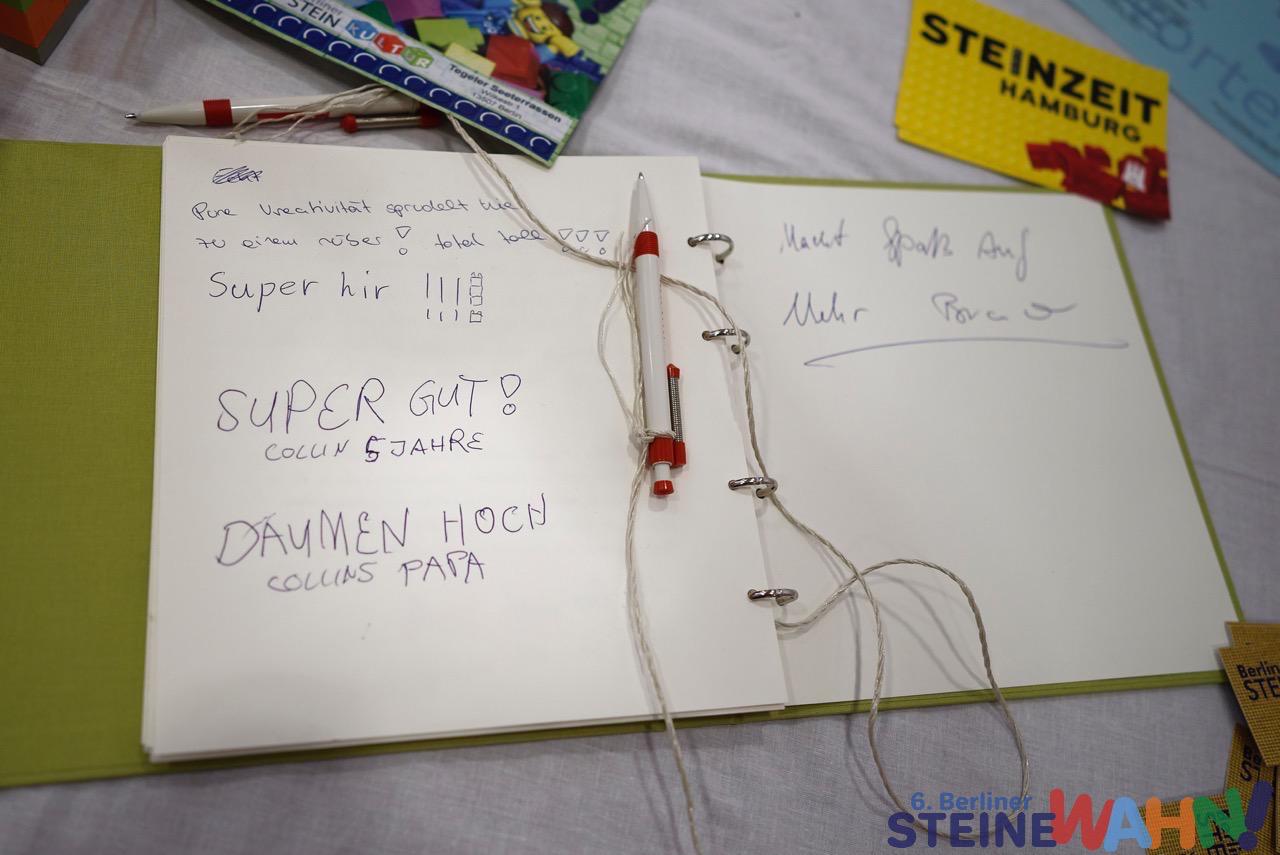 Berliner
STEIN KULTUR
Tegeler Seeterrassen
Wilkestr.1
13507 Berlin
STEINZEIT
HAMBURG
Pure Kreativität sprudelt hie
zu einem rüber! total toll !!!
Super hir !!!
SUPER GUT!
COLLIN 5 JAHRE
DAUMEN HOCH
COLLINS PAPA
Macht Spaß Auf
Mehr
Berlin
STE
6. Berliner
STEINEWAHN!